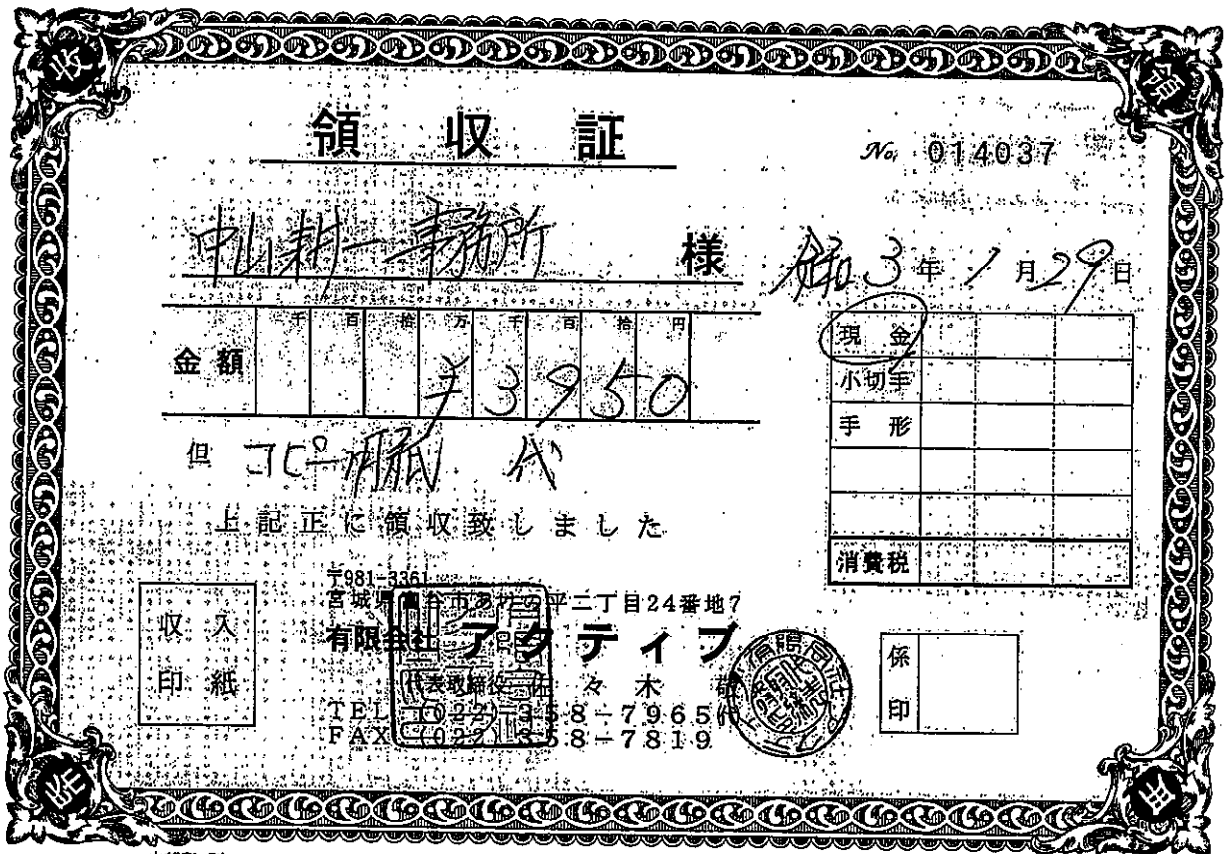 領収証
No. 014037
中山耕一事務所 様
令和3年1月29日
千 百 拾 万 千 百 拾 円
金額 ¥3950
現金
小切手
手形
消費税
但 コピー用紙 代
上記正に領収致しました
収入
印紙
〒981-3361
宮城県富谷市あけの平二丁目24番地7
有限会社 アクティブ
代表取締役 佐々木 敬
TEL (022) 358-7965代
FAX (022) 358-7819
係
印